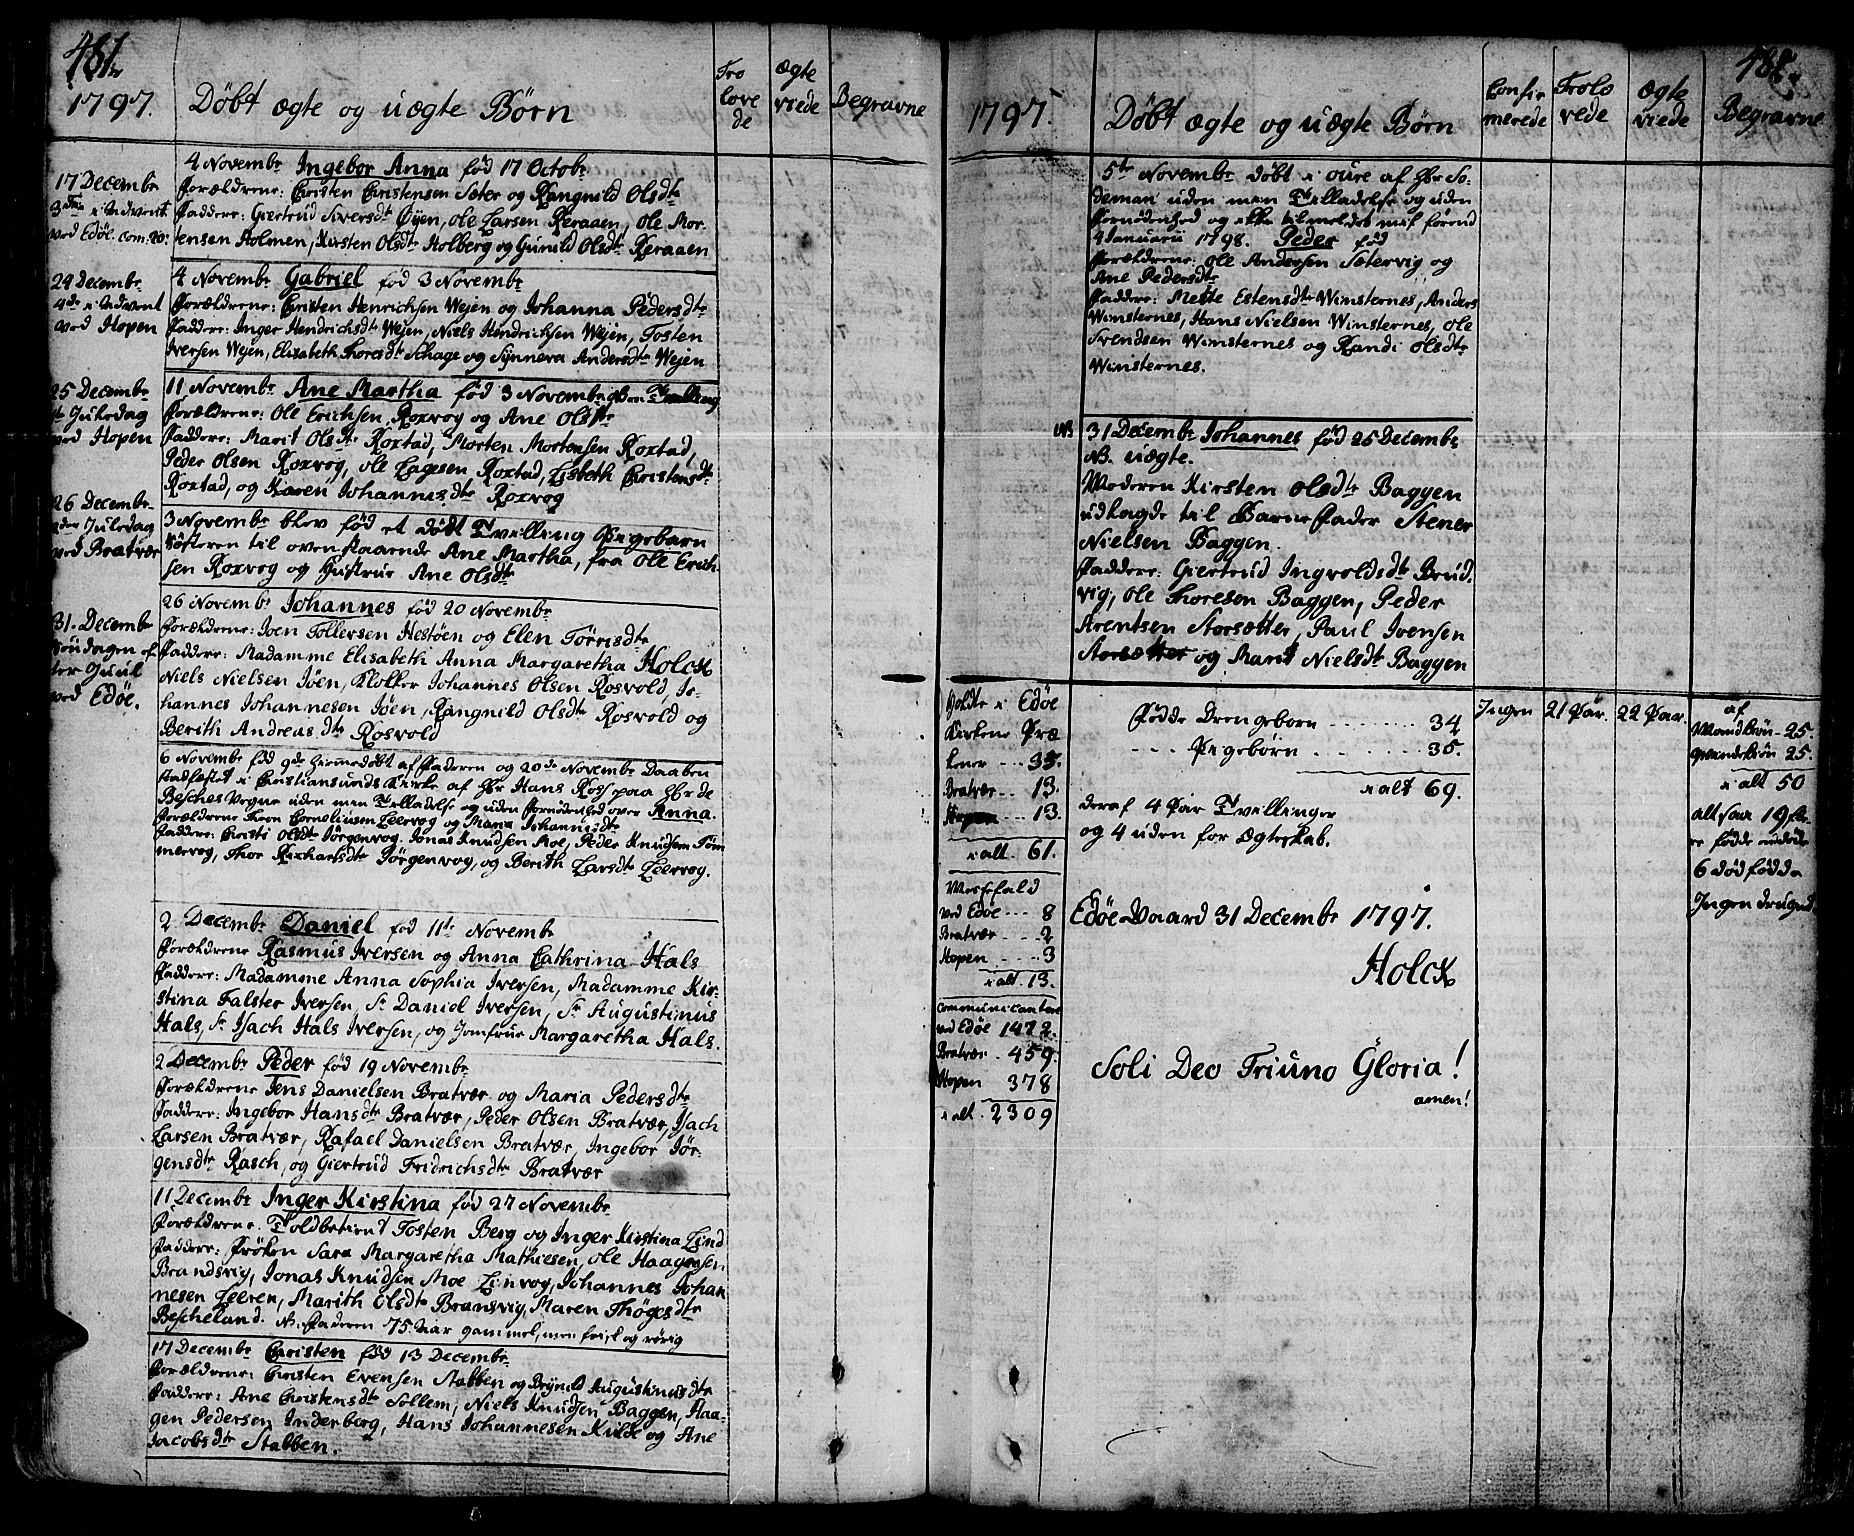 1797.
Døbt ægte og uægte Børn
Tro
love
de
Ægte
viede
Begravne
17 Decembr
3die i Advent
ved Edøe. com. 20.
4 Novembr Ingebor Anna fød 17 Octobr
Forældrene: Christen Christensen Sæter og Rangnild Olsdtr
Faddere: Giertrud Siversdtr Øyen, Ole Larsen Reraaen, Ole Mor-
tensen Holmen, Kirsten Olsdtr Holberg og Gunild Olsdtr Reraaen
24 Decembr
4de i Advent
ved Hopen
4 Novembr Gabriel fød 3 Novembr
Forældrene: Christen Henrichsen Wejen og Johanna Pedersdtr
Faddere: Inger Hendrichsdtr Wejen, Niels Hendrichsen Wejen, Tosten
Iversen Wejen, Elisabeth Thoresdtr Schage og Synneva Andersdtr Wejen
25 Decembr
1te Juledag
ved Hopen
11 Novembr Ane Martha fød 3 Novembr een Tvilling
Forældrene: Ole Erichsen Roxvog og Ane Olsdtr
Faddere: Marit Olsdtr Roxtad, Morten Mortensen Roxtad,
Peder Olsen Roxvog, Ole Lagesen Roxtad, Lisbeth Christensdtr
Roxtad, og Karen Johannisdtr Roxvog
26 Decembr
2den Juledag
ved Bratvær
3 Novembr blev fød et dødt Tvilling Pigebarn
Søsteren til ovenstaaende Ane Martha, fra Ole Erich-
sen Roxvog og Hustrue Ane Olsdtr
31. Decembr
Søndagen ef
ter Juul
ved Edøe.
26 Novembr Johannes fød 20 Novembr
Forældrene: Joen Tollersen Hestøen og Elen Tørrisdtr
Faddere: Madamme Elisabeth Anna Margaretha Holck
Niels Nielsen Jøen, Klokker Johannes Olsen Rosvold, Jo-
hannes Johannesen Jøen, Rangnild Olsdtr Rosvold og
Berith Andreasdtr Rosvold
6 Novembr fød 9de hiemmedøbt af Faderen og 20de Novembr Daaben
stadfæstet i Christiansunds Kirke af Hr Hans Ross paa Hr de
Besches Vegne uden men Tilladelse og uden Fornødenhed over Anna.
Forældrene Cornelius Leervog og Maria Johannisdtr
Faddere: Christi Olsdtr Jørgenvog, Jonas Knudsen Moe, Peder Knudsen Tøm
mervog, Thor Richartsdtr Jørgenvog, og Berith Larsdtr Leervog.
2 Decembr Daniel fød 11te Novembr
Forældrene Rasmus Iversen og Anna Cathrina Hals
Faddere: Madamme Anna Sophia Iversen, Madamme Kir-
stina Falster Iversen, Sr Daniel Iversen, Sr Augustinus
Hals, Sr Isach Hals Iversen, og Jomfrue Margaretha Hals.
2 Decembr Peder fød 19 Novembr
Forældrene Jens Danielsen Bratvær og Maria Pedersdtr
Faddere: Ingebor Hansdtr Bratvær, Peder Olsen Bratvær, Isach
Larsen Bratvær, Rafael Danielsen Bratvær, Ingebor Jør-
gensdtr Rasch, og Giertrud Fridrichsdtr Bratvær
11 Decembr Inger Kirstina fød 27 Novembr
Forældrene: Toldbetient Tosten Berg og Inger Kirstina Lind
Faddere: Frøken Sara Margaretha Mathiesen, Ole Haagensen
Brandsvig, Jonas Knudsen Moe Linvog, Johannes Johan
nesen Leeren, Marith Olsdtr Bransvig, Maren Thøgesdtr
Bescheland. NB. Faderen 75. Aar gammel, men frisk og rørig
17 Decembr Christen fød 13 Decembr
Forældrene: Christen Evensen Stabben og Brynild Augustinusdtr
Faddere: Ane Christensdtr Sollem, Niels Knudsen Baggen, Haa-
gen Pedersen Inderberg, Hans Johannesen Kulde og Ane
Jacobsdtr Stabben.
1797.
Døbt ægte og uægte Børn
Confir
merede
Trolo
vede
Ægte
viede
488.
Begravne
5te Novembr døbt i oure af Hr So-
deman uden men Tilladelse og uden
Fornødenhed og ikke tilmeldet mig førend
4 Januarii 1798. Peder fød
Forældrene: Ole Andersen Sætervig og
Ane Pedersdtr
Faddere: Mette Estensdtr Winsternes, Anders
Winsternes, Hans Nielsen Winsternes, Ole
Svendsen Winsternes og Randi Olsdtr
Winsternes.
NB
31 Decembr Johannes fød 25 Decembr
NB. uægte.
Moderen Kirsten Olsdtr Baggen
udlagde til Barnefader Stener
Nielsen Baggen.
Faddere: Giertrud Ingvoldsdtr Brud.
vig, Ole Thoresen Baggen, Peder
Arentsen Storsætter, Paul Ivensen
Storsætter og Marit Nielsdtr Baggen
Holdte i Edøe
Kirkene Præ
kener --- 35.
Bratvær -- 13.
Hopen --- 13.
i alt. 61.
Messefald
ved Edøe --- 8
Bratvær --- 2
Hopen ---- 3
i alt. 13.
Communicantere
ved Edøe 1472.
Bratvær. 459.
Hopen 378
i alt. 2309
Fødde Drengebørn ------- 34
--- Pigebørn ------- 35.
i alt 69.
deraf 4 Par Tvillinger
og 4 uden for Ægteskab.
Ingen
21 Par.
22 Par.
af
Mandkiøn - 25.
Qvindekiøn 25.
i alt 50
altsaa 19 fle-
re fødde end døde
6 død fødde
Ingen druknet.
Edøe Vaard 31 Decembr 1797.
Holck
Soli Deo Triuno Gloria!
amen!